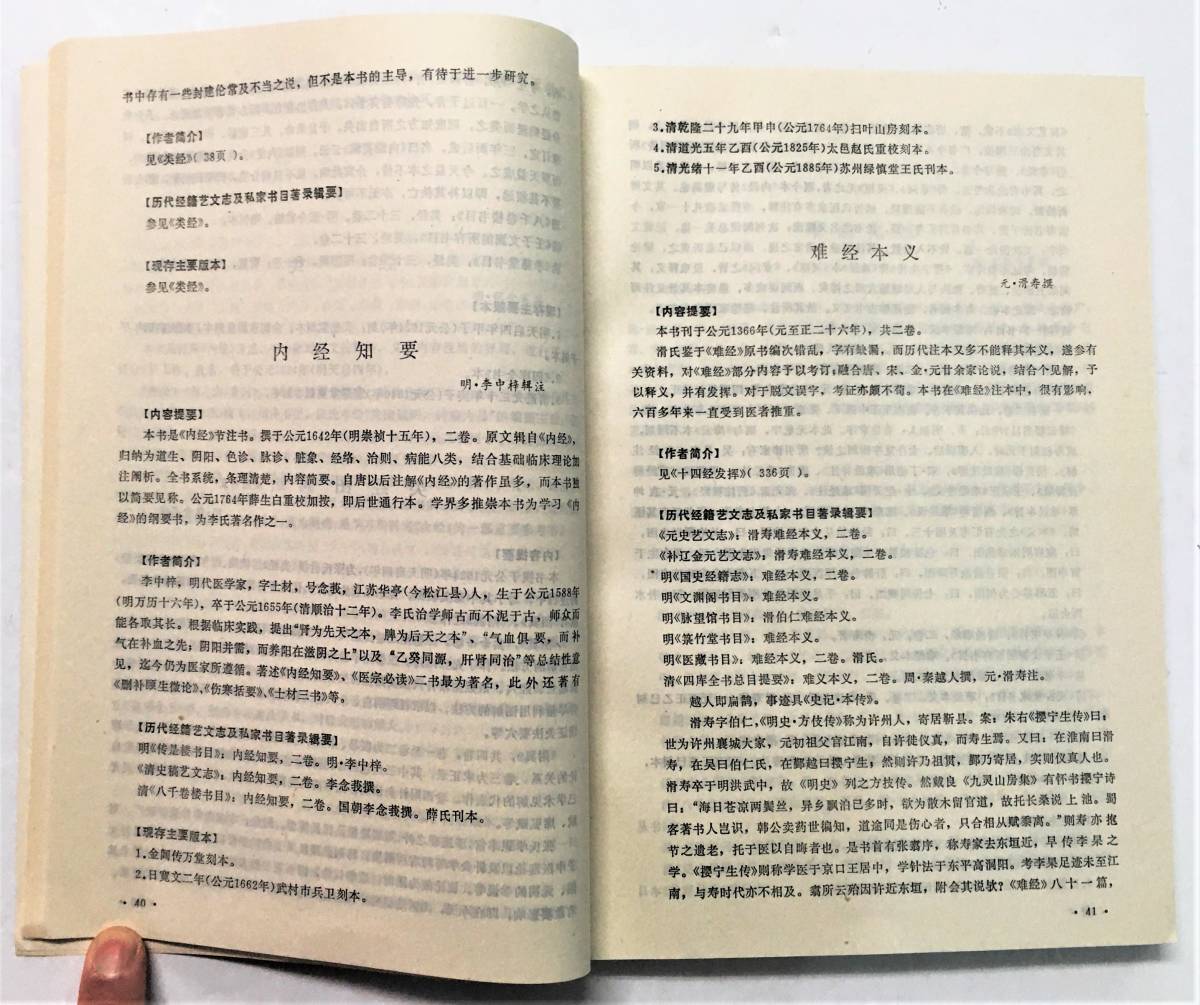 书中存有一些封建伦常及不当之说，但不是本书的主导，有待于进一步研究。
【作者简介】
见《类经》（38页）。
【历代经籍艺文志及私家书目著录辑要】
参见《类经》。
【现存主要版本】
参见《类经》。
内经知要
明·李中梓辑注
【内容提要】
本书是《内经》节注书。撰于公元1642年(明崇祯十五年)，二卷。原文辑自《内经》，
归纳为道生、阴阳、色诊、脉诊、脏象、经络、治则、病能八类，结合基础临床理论加
注阐析。全书系统，条理清楚，内容简要。自唐以后注解《内经》的著作虽多，而本书独
以简要见称。公元1764年薛生白重校加按，即后世通行本。学界多推崇本书为学习《内
经》的纲要书，为李氏著名作之一。
【作者简介】
李中梓，明代医学家，字士材，号念莪，江苏华亭(今松江县)人，生于公元1588年
(明万历十六年)，卒于公元1655年(清顺治十二年)。李氏治学师古而不泥于古，师众而
能各取其长。根据临床实践，提出“肾为先天之本，脾为后天之本”、“气血俱要，而补
气在补血之先；阴阳并需，而养阳在滋阴之上”以及“乙癸同源，肝肾同治”等总结性意
见，迄今仍为医家所遵循。著述《内经知要》、《医宗必读》二书最为著名，此外还著有
《删补颐生微论》、《伤寒括要》、《士材三书》等。
【历代经籍艺文志及私家书目著录辑要】
明《传是楼书目》：内经知要，二卷。明·李中梓。
《清史稿艺文志》：内经知要，二卷。李念莪撰。
清《八千卷楼书目》：内经知要，二卷。国朝李念莪撰。薛氏刊本。
【现存主要版本】
1.金阊传万堂刻本。
2.日宽文二年(公元1662年)武村市兵卫刻本。
·40·
3.清乾隆二十九年甲申(公元1764年)扫叶山房刻本。
4.清道光五年乙酉(公元1825年)太邑赵氏重校刻本。
5.清光绪十一年乙酉(公元1885年)苏州绿慎堂王氏刊本。
难经本义
元·滑寿撰
【内容提要】
本书刊于公元1366年(元至正二十六年)，共二卷。
滑氏鉴于《难经》原书编次错乱，字有缺漏，而历代注本又多不能释其本义，遂参有
关资料，对《难经》部分内容予以考订；融合唐、宋、金、元廿余家论说，结合个见解，予
以释义，并有发挥。对于脱文误字，考证亦颇不苟。本书在《难经》注本中，很有影响，
六百多年来一直受到医者推重。
【作者简介】
见《十四经发挥》（336页）。
【历代经籍艺文志及私家书目著录辑要】
《元史艺文志》：滑寿难经本义，二卷。
《补辽金元艺文志》：滑寿难经本义，二卷。
明《国史经籍志》：难经本义，二卷。
明《文渊阁书目》：难经本义。
明《脉望馆书目》：滑伯仁难经本义。
明《箓竹堂书目》：难经本义。
明《医藏书目》：难经本义，二卷。滑氏。
清《四库全书总目提要》：难义本义，二卷。周·秦越人撰，元·滑寿注。
越人即扁鹊，事迹具《史记·本传》。
滑寿字伯仁，《明史·方伎传》称为许州人，寄居鄞县。案：朱右《撄宁生传》曰：
世为许州襄城大家，元初祖父官江南，自许徙仪真，而寿生焉。又曰：在淮南曰滑
寿，在吴曰伯仁氏，在鄞越曰撄宁生，然则许乃祖贯，鄞乃寄居，实则仪真人也。
滑寿卒于明洪武中，故《明史》列之方技传。然戴良《九灵山房集》有怀书撄宁诗
曰：“海日苍凉两鬓丝，异乡飘泊已多时，欲为散木留官道，故托长桑说上池。蜀
客著书人岂识，韩公卖药世偏知，道途同是伤心者，只合相从赋黍离。”则寿亦抱
节之遗老，托于医以自晦者也。是书首有张翥序，称寿家去东垣近，早传李杲之
学。《撄宁生传》则称学医于京口王居中，学针法于东平高洞阳。考李杲足迹未至江
南，与寿时代亦不相及。翥所云殆因许近东垣，附会其说欤？《难经》八十一篇，
·41·